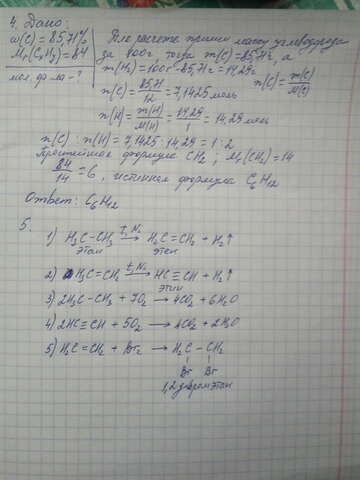 4. Дано:
ω(C) = 85,71%
Mr(CxHy) = 84
мол. ф-ла - ?
Для расчета примем массу углеводорода
за 100г, тогда m(C) = 85,71г, а
m(H2) = 100г - 85,71г = 14,29г
n(C) = m(C)/M(C)
n(C) = 85,71/12 = 7,1425 моль
n(H) = m(H)/M(H) = 14,29/1 = 14,29 моль
n(C) : n(H) = 7,1425 : 14,29 = 1 : 2
Простейшая формула CH2 ; Mr(CH2) = 14
84/14 = 6, истинная формула C6H12
Ответ: C6H12
5.
1) H3C-CH3 t, Ni → H2C=CH2 + H2↑
этан этен
2) H2C=CH2 t, Ni → HC≡CH + H2↑
этин
3) 2H3C-CH3 + 7O2 → 4CO2 + 6H2O
4) 2HC≡CH + 5O2 → 4CO2 + 2H2O
5) H2C=CH2 + Br2 → H2C - CH2
Br Br
1,2 дибромэтан